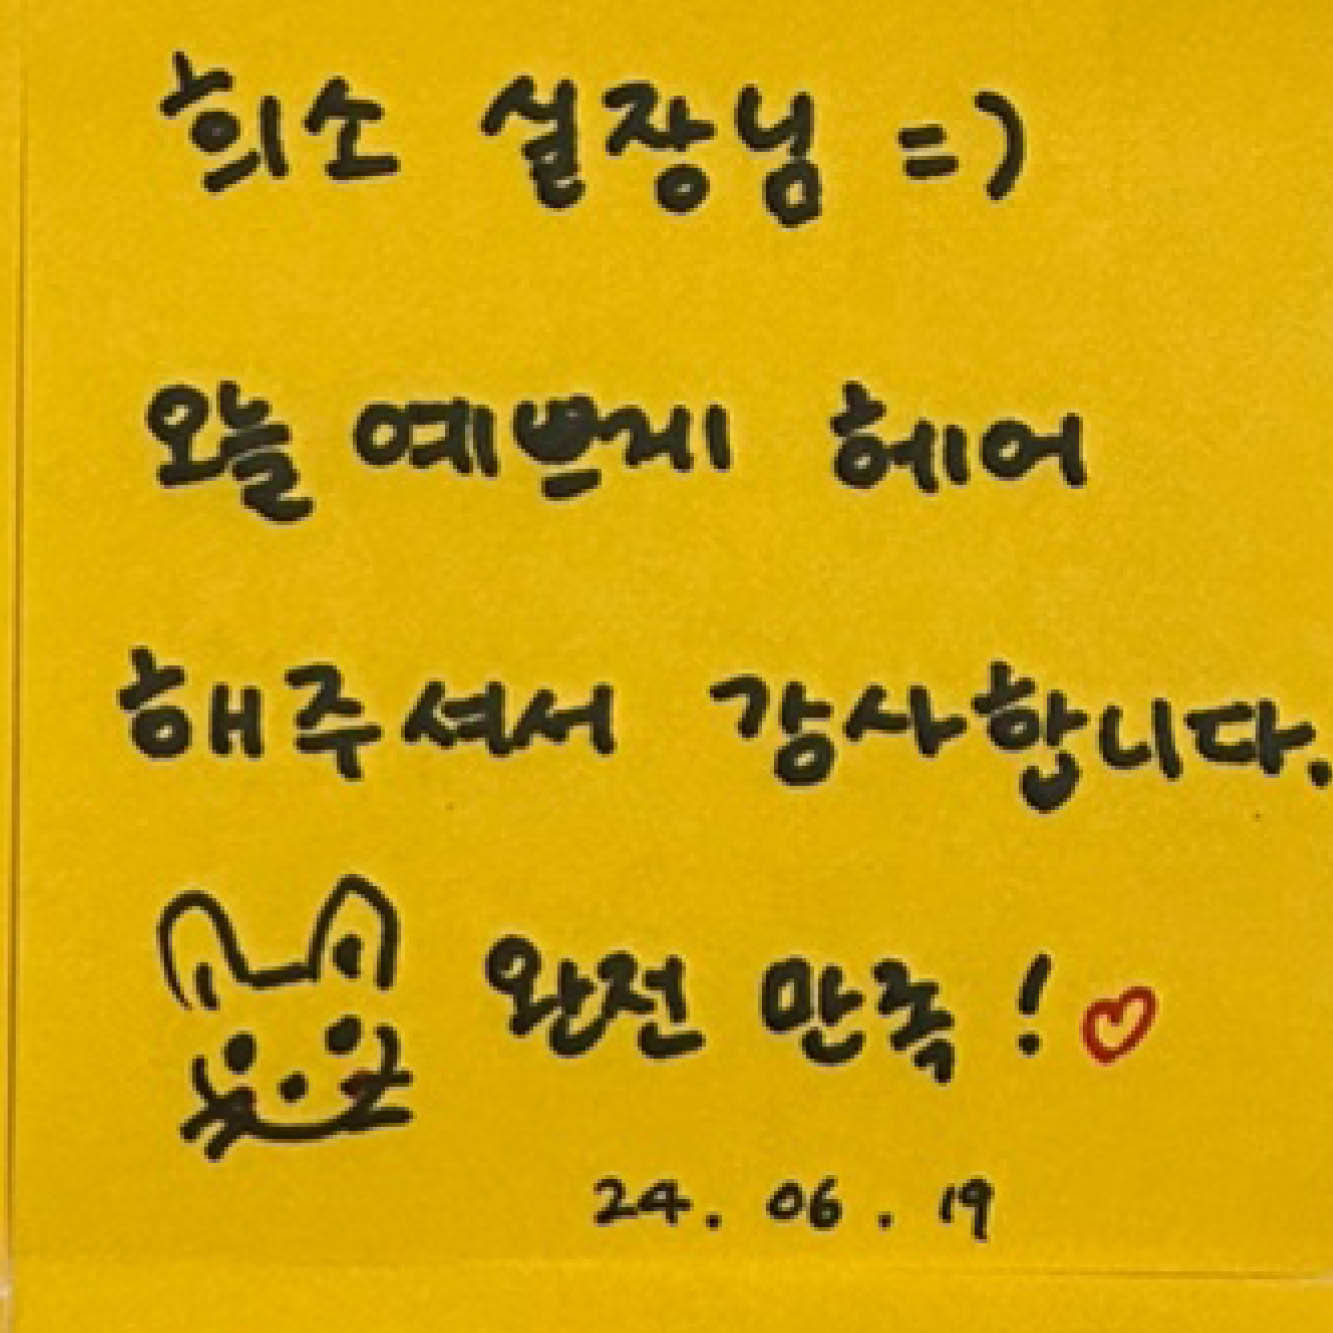 희소 실장님 =)
오늘 예쁘게 헤어
해주셔서 감사합니다.
완전 만족 ! ♡
24. 06. 19